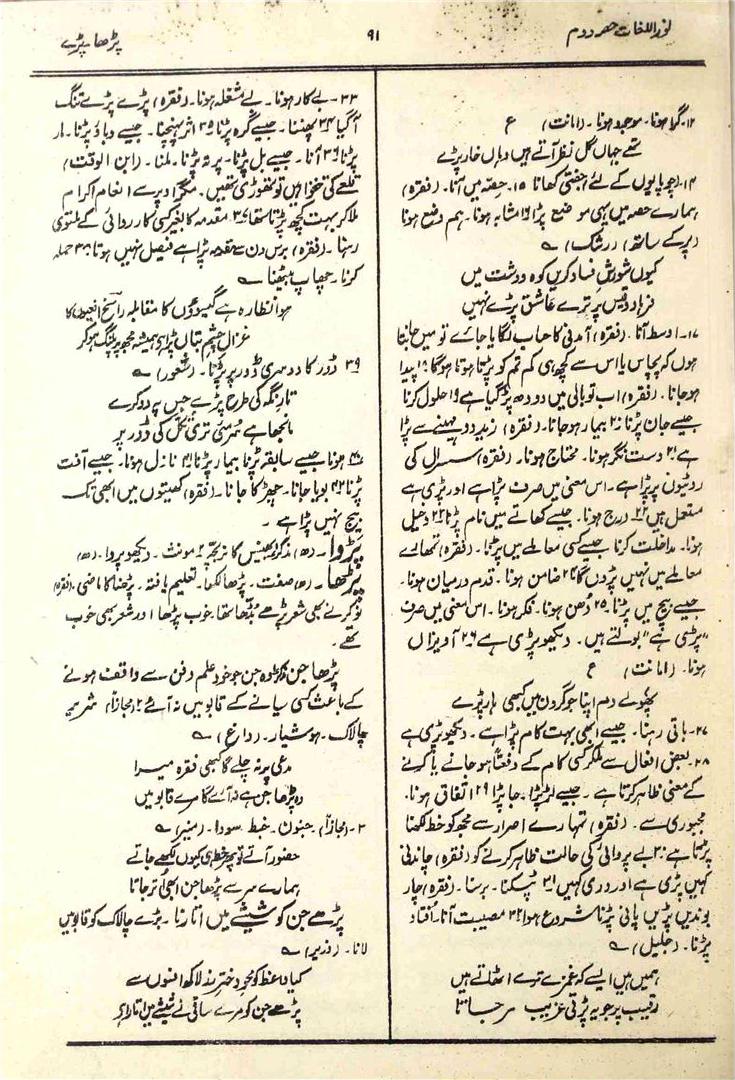 نور اللغات حصہ دوم
۹۱
پڑھا۔پڑے
۱۲۔ گرا ہونا۔ موجود ہونا۔ (امانت) ع
تھے جہاں گل نظر آتے ہیں وہاں خار پڑے
۱۴۔ (چوپایوں کے لئے) جفتی کھانا ۱۵۔ حصہ میں آنا۔ (فقرہ)
ہمارے حصہ میں یہی موضع پڑا ۱۶ مشابہ ہونا۔ ہم وضع ہونا
(پر کے ساتھ) (رشک) ؎
کیوں شورش فساد کریں کوہ و دشت میں
فرہاد و قیس پر ترے عاشق پڑے نہیں
۱۷۔ اوسط آنا۔ (فقرہ) آمدنی کا حساب لگایا جائے تو میں جانتا
ہوں کہ پچاس یا اس سے کچھ ہی کم تم کو پڑتا ہوتا ہوگا ۱۸ پیدا
ہو جانا۔ (فقرہ) اب تو بالی میں دودھ پڑ گیا ہے ۱۹ حلول کرنا
جیسے جان پڑنا ۲۰ بیمار ہو جانا۔ (فقرہ) زید دو مہینے سے پڑا
ہے ۲۱ دست نگر ہونا۔ محتاج ہونا۔ (فقرہ) سسرال کی
روٹیوں پر پڑا ہے۔ اس معنی میں صرف پڑا ہے اور پڑی ہے
مستعمل ہیں ۲۲ درج ہونا۔ جیسے کھاتے میں نام پڑنا ۲۳ دخیل
ہونا۔ مداخلت کرنا جیسے کسی معاملے میں پڑنا۔ (فقرہ) تمھارے
معاملے میں نہیں پڑوں گا ۲۴ ضامن ہونا۔ قدم درمیان ہونا۔
جیسے بیچ میں پڑنا ۲۵ دھن ہونا۔ فکر ہونا۔ اس معنی میں صرف
"پڑی ہے" بولتے ہیں۔ دیکھو پڑی ہے ۲۶ آویزاں
ہونا۔ (امانت) ع
پھولے دم اپنا جو گردن میں کبھی ہار پڑے
۲۷۔ باقی رہنا۔ جیسے ابھی بہت کام پڑا ہے۔ دیکھو پڑی ہے
۲۸۔ بعض افعال سے ملکر کسی کام کے دفعتاً ہو جانے یا کرنے
کے معنی ظاہر کرتا ہے۔ جیسے لڑ پڑا۔ جا پڑا ۲۹ اتفاق ہونا۔
مجبوری سے۔ (فقرہ) تمہارے اصرار سے مجھ کو خط لکھنا
پڑتا ہے ۳۰ بے پروائی کی حالت ظاہر کرنے کو (فقرہ) چاندنی
کہیں پڑی ہے اور دری کہیں ۳۱ ٹپکنا۔ برسنا۔ (فقرہ) چار
بوندیں پڑیں پانی پڑنا شروع ہوا ۳۲ مصیبت آنا۔ اُفتاد
پڑنا۔ (جلیل) ؎
ہمیں ہیں ایسے کہ غمزے ترے اٹھاتے ہیں
رقیب پر جو یہ پڑتی غریب مر جاتا
۳۳۔ بے کار ہونا۔ بے مشغلہ ہونا۔ (فقرہ) پڑے پڑے تنگ
آ گیا ۳۴ پھنسنا۔ جیسے گرہ پڑنا ۳۵ اثر پہنچنا۔ جیسے دباؤ پڑنا۔ مار
پڑنا ۳۶ آنا۔ جیسے بل پڑنا۔ پرتہ پڑنا۔ ملنا۔ (ابن الوقت)
قلعے کی تنخواہیں تو تھوڑی تھیں۔ مگر اوپر سے انعام اکرام
ملا کر بہت کچھ پڑتا تھا ۳۷ مقدمہ کا بغیر کسی کارروائی کے ملتوی
رہنا۔ (فقرہ) برس دن سے مقدمہ پڑا ہے فیصل نہیں ہوتا ۳۸ حملہ
کرنا۔ چھاپ بیٹھنا ؎
ہوا نظارہ ہے گیسوؤں کا مقابلہ راسخ افعیوں کا
غزال چشم بتاں پڑا ہے ہمیشہ مجھ پر پلنگ ہو کر
۳۹ ڈور کا دوسری ڈور پر پڑنا۔ (شعور) ؎
تار نگہ کی طرح پڑے جس پہ دو کرے
مانجھا ہے سُرمئی تری تکل کی ڈور پر
۴۰ ہونا جیسے سابقہ پڑنا بیمار پڑنا ۴۱ نازل ہونا۔ جیسے آفت
پڑنا ۴۲ بویا جانا۔ چھڑکا جانا۔ (فقرہ) کھیتوں میں ابھی تک
بیج نہیں پڑا ہے۔
پڑوا۔ (ھ) مذکر بھینس کا نر بچہ ۲ مونث۔ دیکھو پروا۔ (ھ)
پڑھا۔ (ھ) صفت۔ پڑھا لکھا۔ تعلیم یافتہ۔ پڑھنا کا ماضی۔ (فقرہ)
نوکر نے بھی شعر پڑھے پڑھا تھا خوب پڑھا اور شعر بھی خوب
تھے۔
پڑھا جن مذکر وہ جن جو خود علم و فن سے واقف ہونے
کے باعث کسی سیانے کے قابو میں نہ آئے ۲ (مجازاً) شریر
چالاک۔ ہوشیار۔ (داغ) ؎
مدعی پر نہ چلے گا کبھی فقرہ میرا
وہ پڑھا جن ہے نہ آئے گا مرے قابو میں
۳۔ (مجازاً) جنون۔ خبط۔ سودا۔ (منیر) ؎
حضور آتے تو پھر خط ہی کیوں لکھے جاتے
ہمارے سر سے پڑھا جن ابھی اُتر جاتا
پڑھے جن کو شیشے میں اتارنا۔ بڑے چالاک کو قابو میں
لانا۔ (وزیر) ؎
کیا واعظ کو محو دختر رز لاکھ افسوں سے
پڑھے جن کو مرے ساقی نے شیشے میں اتارا ہے